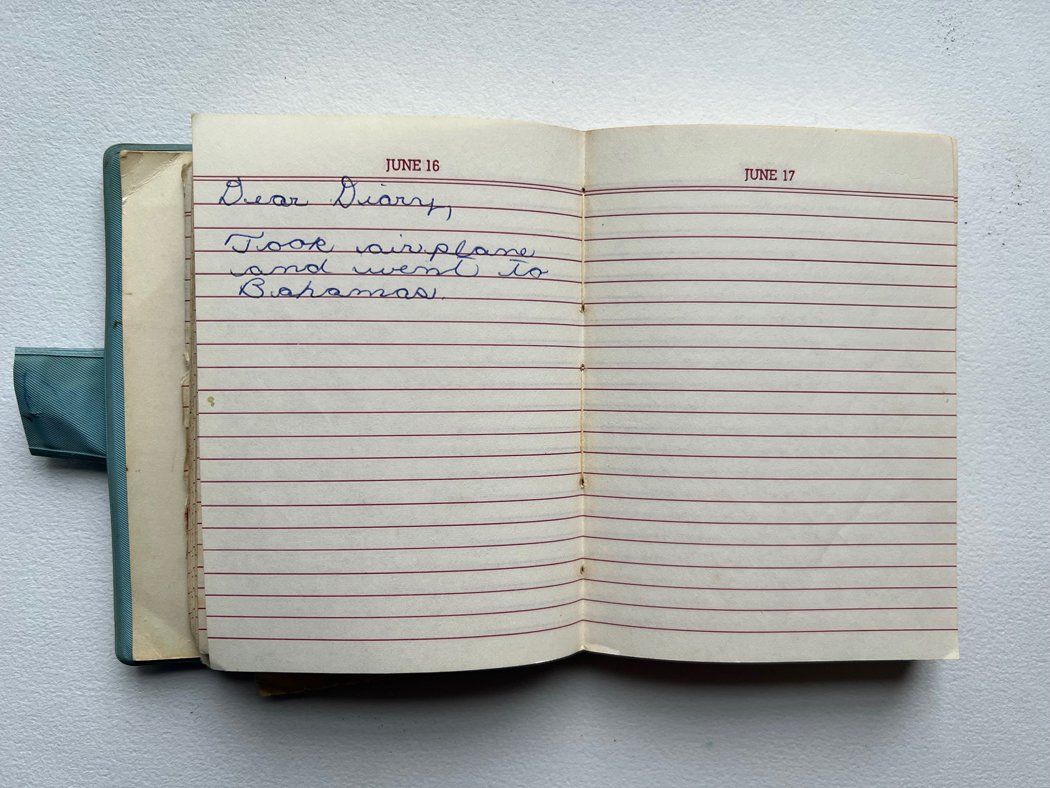 JUNE 16
Dear Diary,
Took airplane
and went to
Bahamas.
JUNE 17